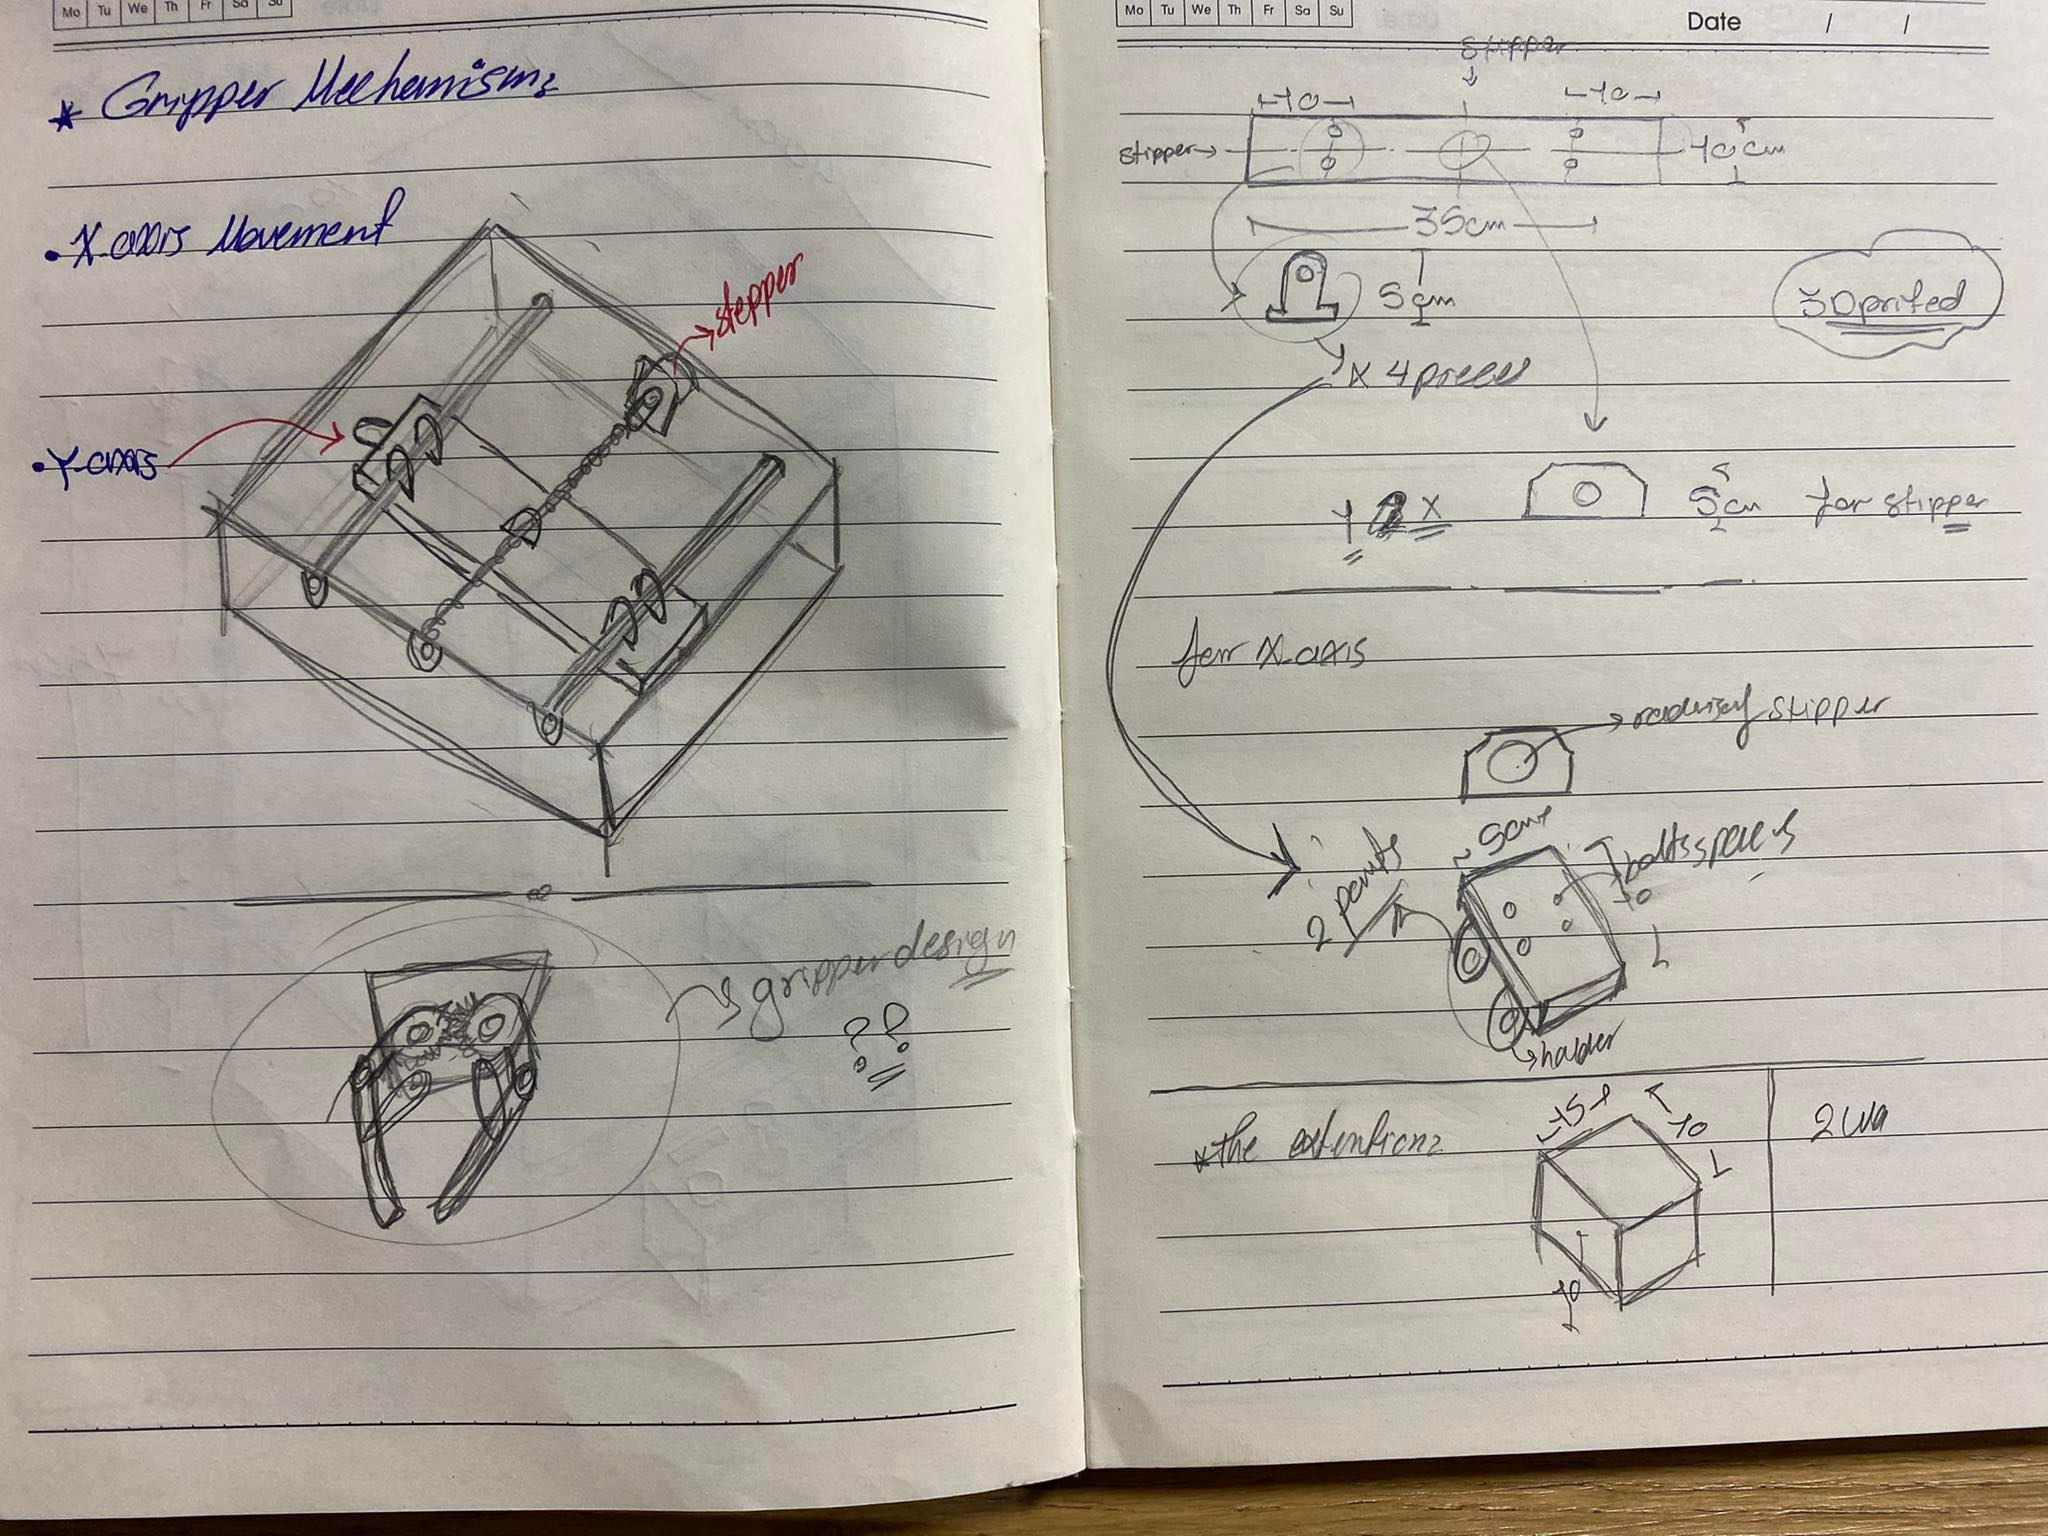 Mo Tu We Th Fr Sa Su
* Gripper Mechanism:
• X-axis Movement
stepper
• Y-axis
gripper design
??
Mo Tu We Th Fr Sa Su
Date / /
stipper
10 10
stipper
10 cm
35cm
5cm
3D prited
X 4 pieces
Y & X
5cm for stipper
for X-axis
stipper
5cm
bolts spaces
10
2
holder
* the extention:
15
10
10